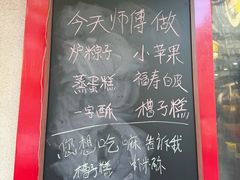 今天师傅做
炉粽子 小苹果
蒸蛋糕 福寿白皮
一字酥 槽子糕
您想吃嘛告诉我
槽子糕